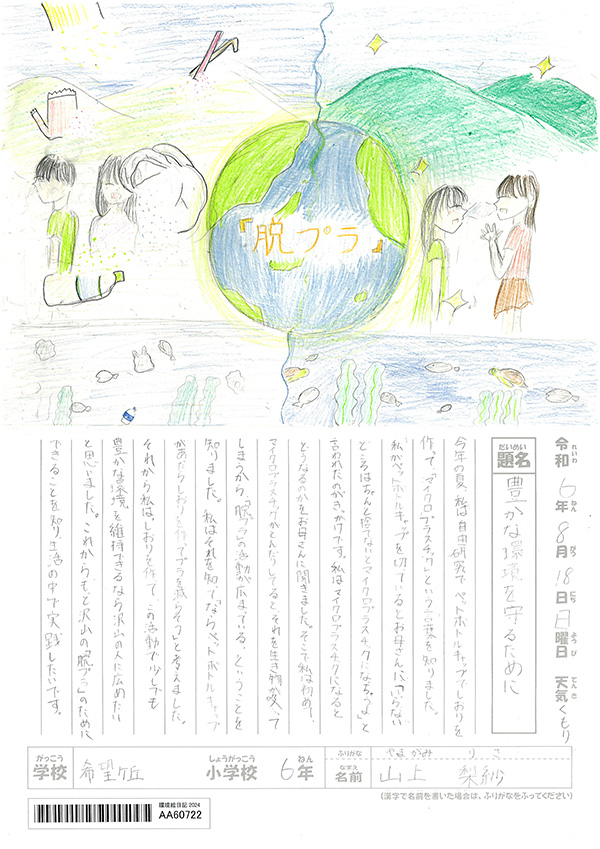 『脱プラ』
令和6年8月18日日曜日 天気くもり
れいわ ねん がつ にち ようび てんき
だいめい
題名 豊かな環境を守るために
今年の夏、私は自由研究でペットボトルキャップでしおりを
作って、「マイクロプラスチック」という言葉を知りました。
私がペットボトルキャップを切っているとお母さんに「いらない
ところはちゃんと捨てないとマイクロプラスチックになっちゃうよ」と
言われたのがきっかけです。私はマイクロプラスチックになると
どうなるのかをお母さんに聞きました。そこで私は初めて、
マイクロプラスチックがとんだりしてると、それを生き物が吸って
しまうから、「脱プラ」の活動が広まっている、ということを
知りました。私はそれを知って、「ならペットボトルキャップ
があだらしおりを作ってプラを減らそう」と考えました。
それから私はしおりを作って、この活動で少しでも
豊かな環境を維持できるなら沢山の人に広めたい
と思いました。これからもっと沢山の「脱プラ」のために
できることを知り、生活の中で実践したいです。
がっこう しょうがっこう ねん ふりがな やまがみ りさ
学校 希望ケ丘 小学校 6年 なまえ 名前 山上 梨紗
(漢字で名前を書いた場合は、ふりがなをふってください)
環境絵日記 2024
AA60722